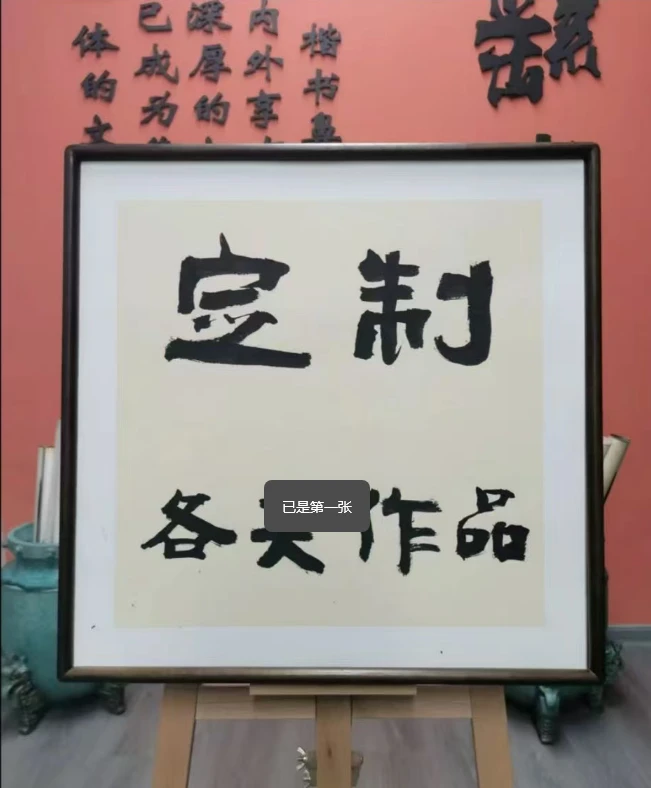 体的
已成为
深厚的
内外享
楷书
定制
各类作品
已是第一张